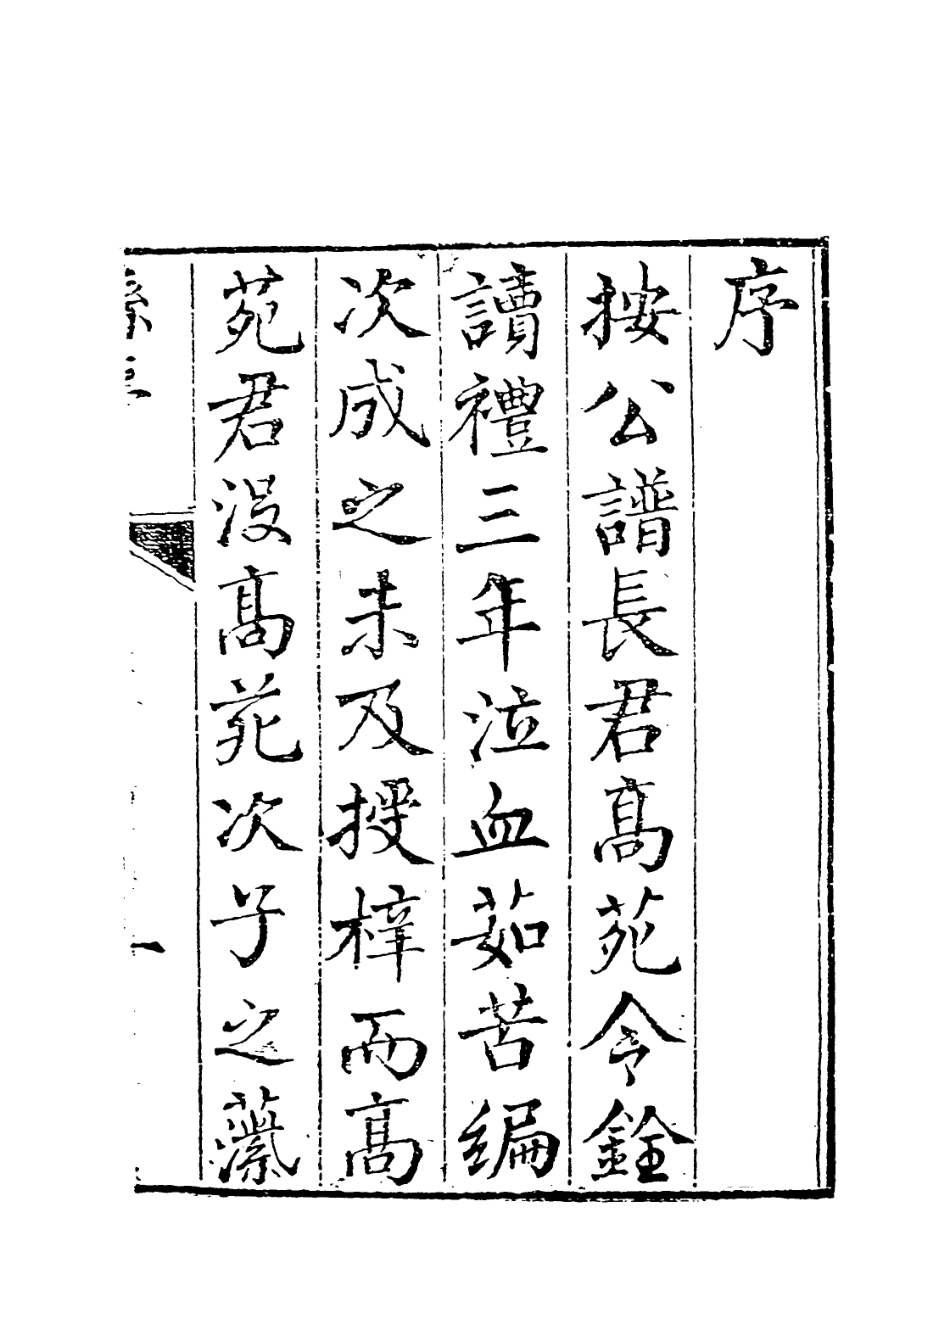 序
按公譜長君髙苑令銓
讀禮三年泣血茹苦編
次成之未及授梓而髙
苑君沒髙苑次子之蘩
一